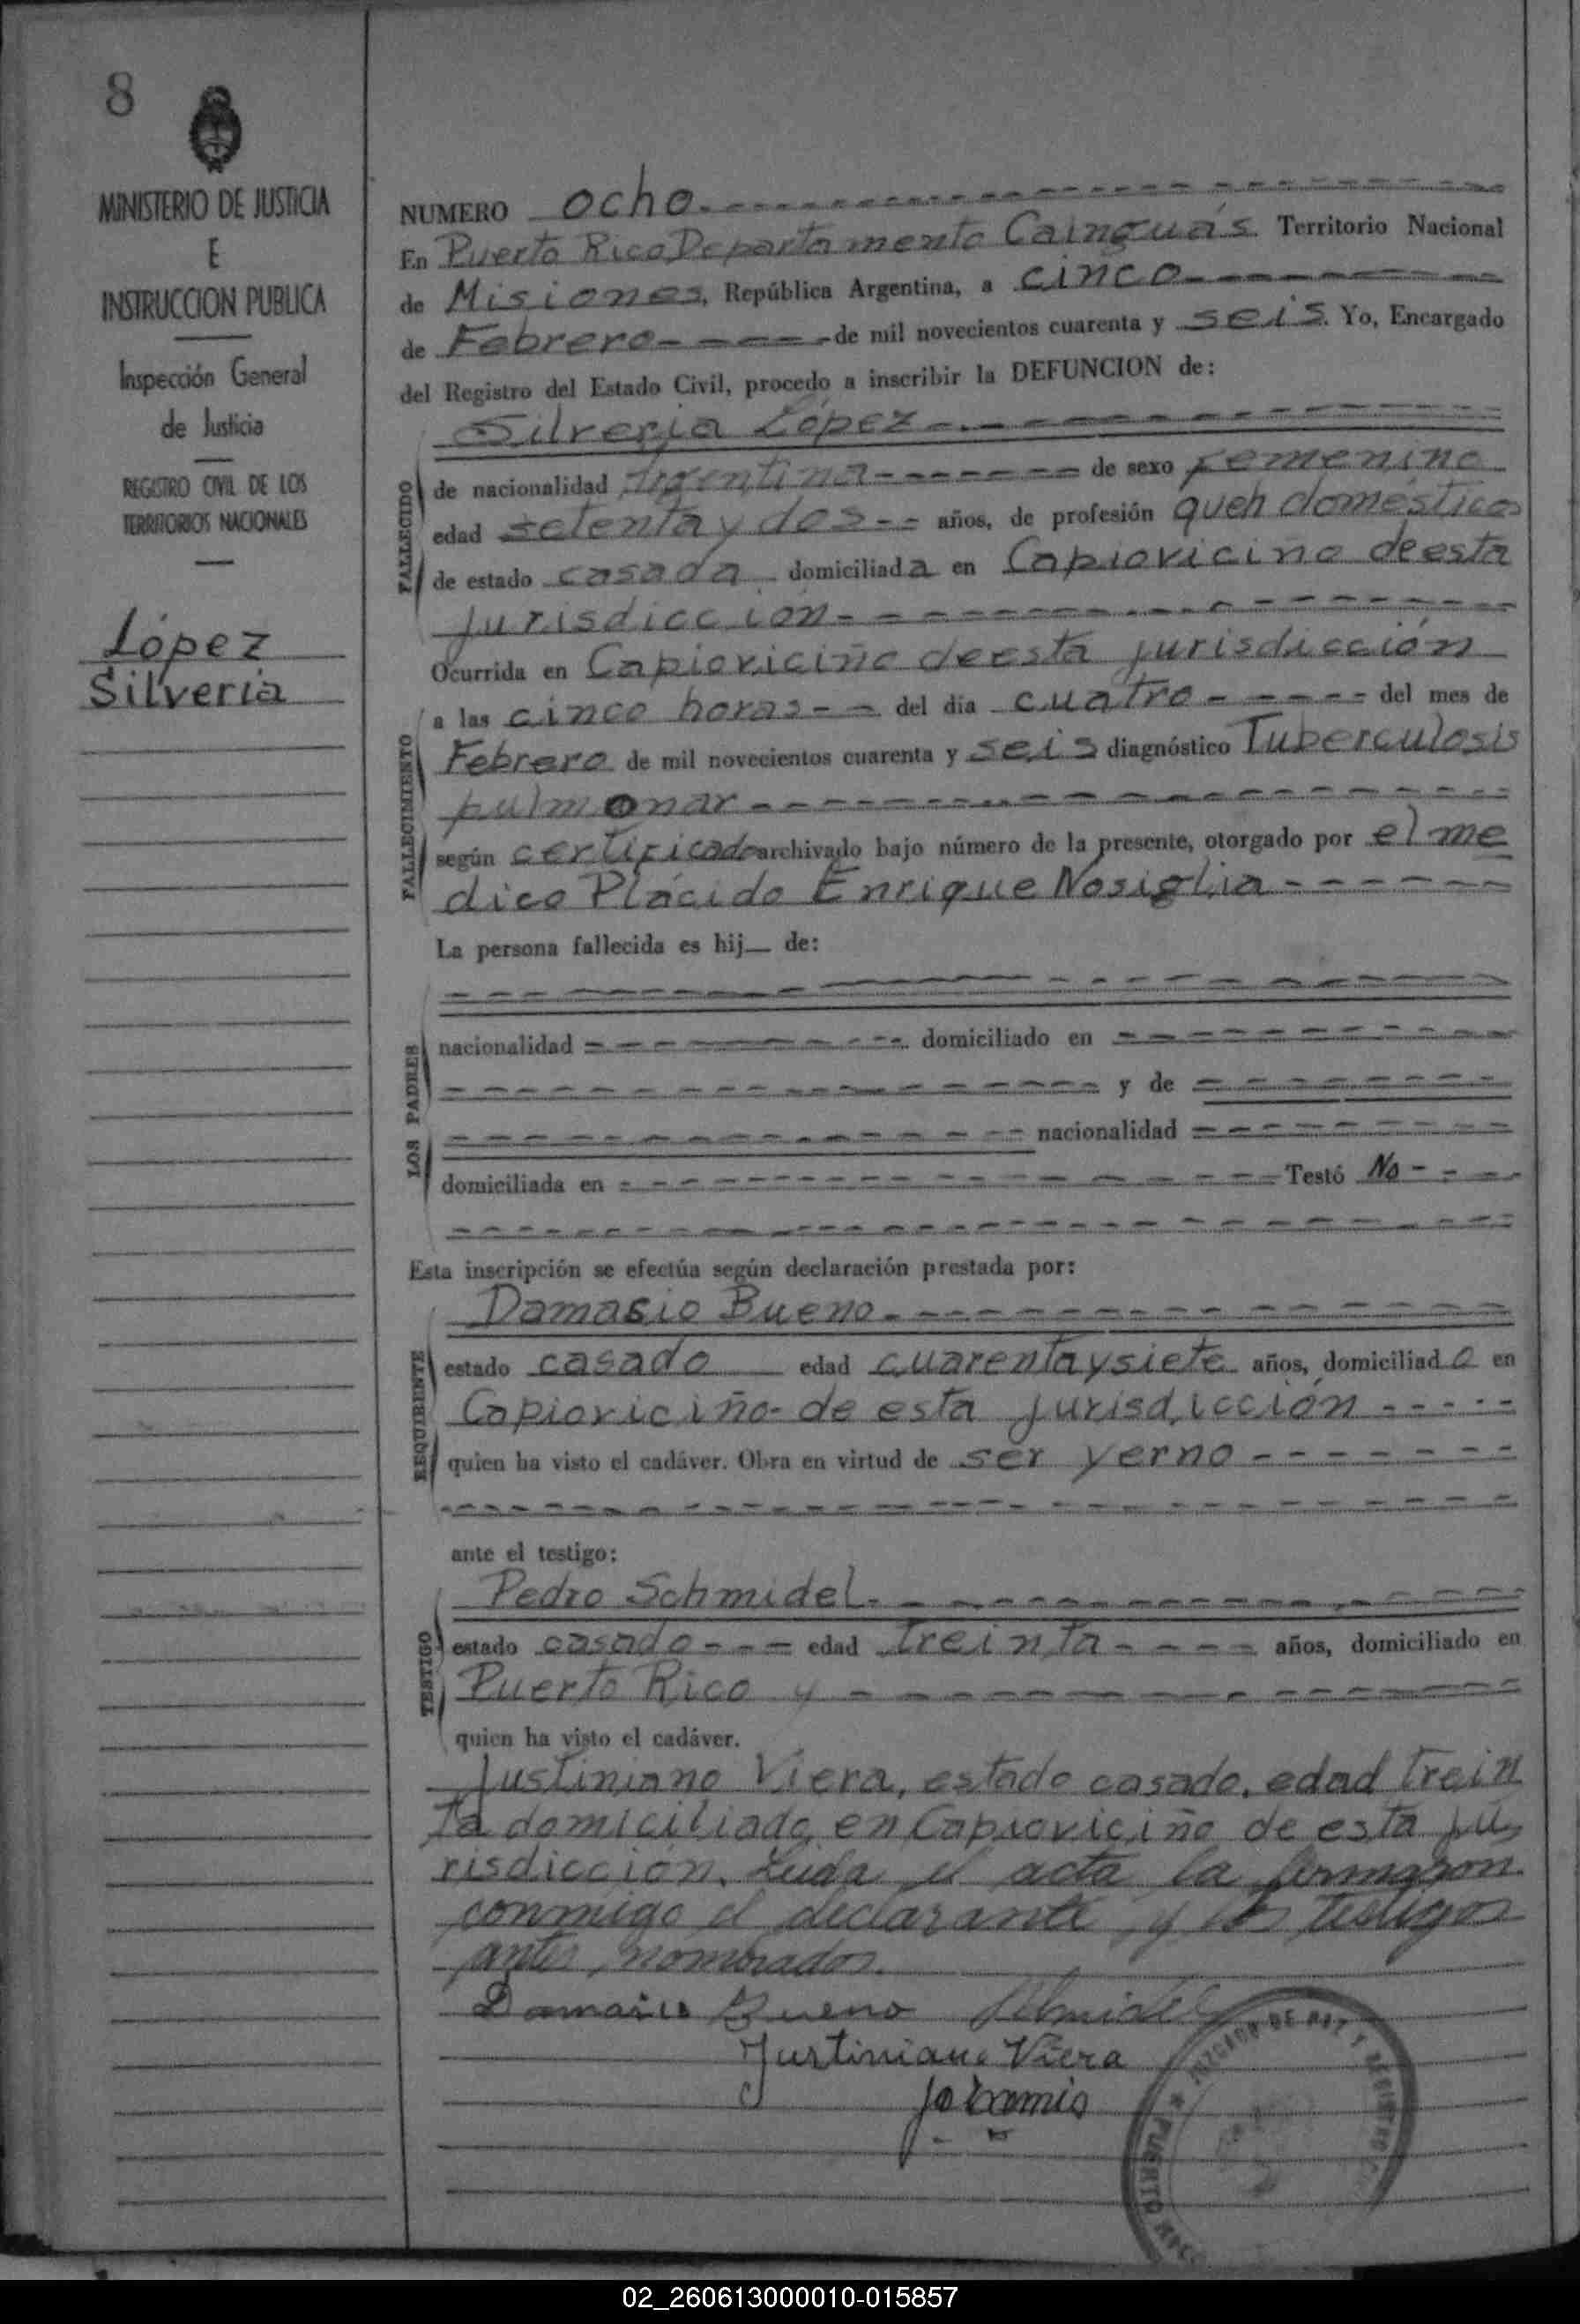 8
MINISTERIO DE JUSTICIA
E
INSTRUCCION PUBLICA
Inspección General
de Justicia
REGISTRO CIVIL DE LOS
TERRITORIOS NACIONALES
López
Silveria
NUMERO ocho
En Puerto Rico Departamento Cainguás Territorio Nacional
de Misiones, República Argentina, a cinco
de Febrero de mil novecientos cuarenta y seis. Yo, Encargado
del Registro del Estado Civil, procedo a inscribir la DEFUNCION de:
Silveria López
FALLECIDO
de nacionalidad Argentina de sexo Femenino
edad setenta y dos años, de profesión queh domésticos
de estado casada domiciliada en Capioviciño de esta
jurisdicción
Ocurrida en Capioviciño de esta jurisdicción
FALLECIMIENTO
a las cinco horas del día cuatro del mes de
Febrero de mil novecientos cuarenta y seis diagnóstico Tuberculosis
pulmonar
según certificado archivado bajo número de la presente, otorgado por el me
dico Plácido Enrique Nosiglia
La persona fallecida es hij de:
LOS PADRES
nacionalidad domiciliado en
y de
nacionalidad
domiciliada en Testó No
Esta inscripción se efectúa según declaración prestada por:
Damasio Bueno
REQUIRENTE
estado casado edad cuarenta y siete años, domiciliado en
Capioviciño de esta jurisdicción
quien ha visto el cadáver. Obra en virtud de ser yerno
ante el testigo:
Pedro Schmidel
TESTIGO
estado casado edad treinta años, domiciliado en
Puerto Rico y
quien ha visto el cadáver.
Justiniano Viera, estado casado, edad trein
ta domiciliado en Capioviciño de esta ju
risdicción. Leída el acta la firmaron
conmigo el declarante y los testigos
antes nombrados.
Damasio Bueno Schmidel
Justiniano Viera
JUZGADO DE PAZ Y REGISTRO
PUERTO RICO
02_260613000010-015857